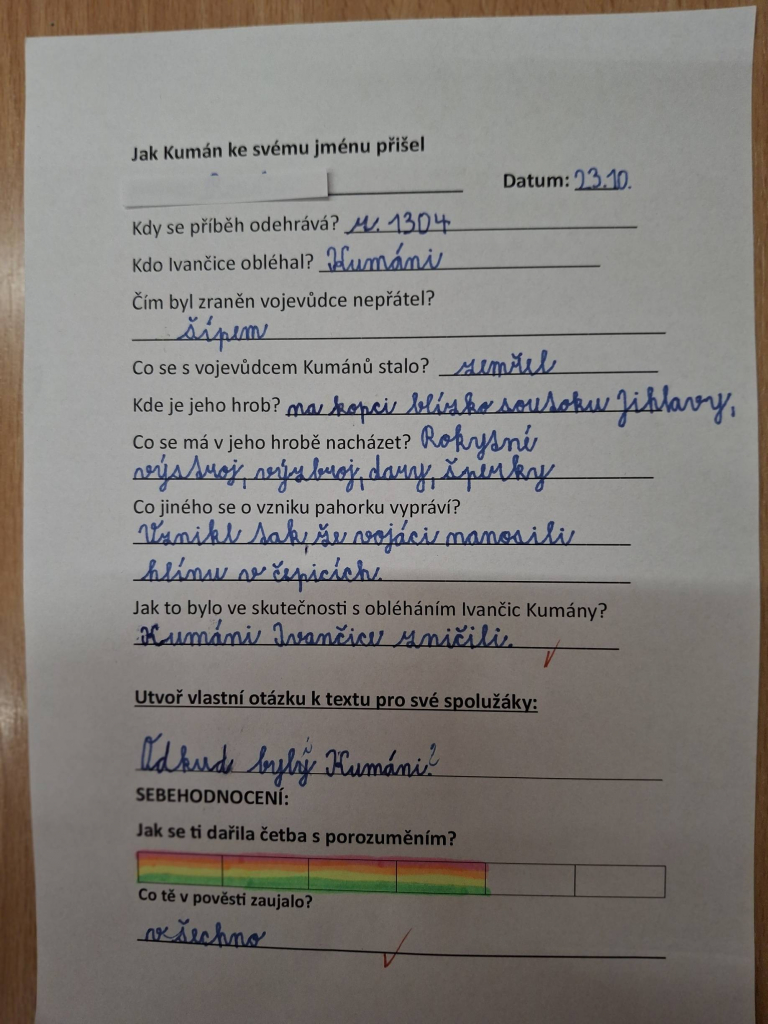 Jak Kumán ke svému jménu přišel
Datum: 23.10.
Kdy se příběh odehrává? r. 1304
Kdo Ivančice obléhal? Kumáni
Čím byl zraněn vojevůdce nepřátel?
šípem
Co se s vojevůdcem Kumánů stalo? zemřel
Kde je jeho hrob? na kopci blízko soutoku Jihlavy,
Co se má v jeho hrobě nacházet? Rokytné
výstroj, výzbroj, dary, šperky
Co jiného se o vzniku pahorku vypráví?
Vznikl tak, že vojáci nanosili
hlínu v čepicích.
Jak to bylo ve skutečnosti s obléháním Ivančic Kumány?
Kumáni Ivančice zničili.
Utvoř vlastní otázku k textu pro své spolužáky:
Odkud byli Kumáni?
SEBEHODNOCENÍ:
Jak se ti dařila četba s porozuměním?
Co tě v pověsti zaujalo?
všechno